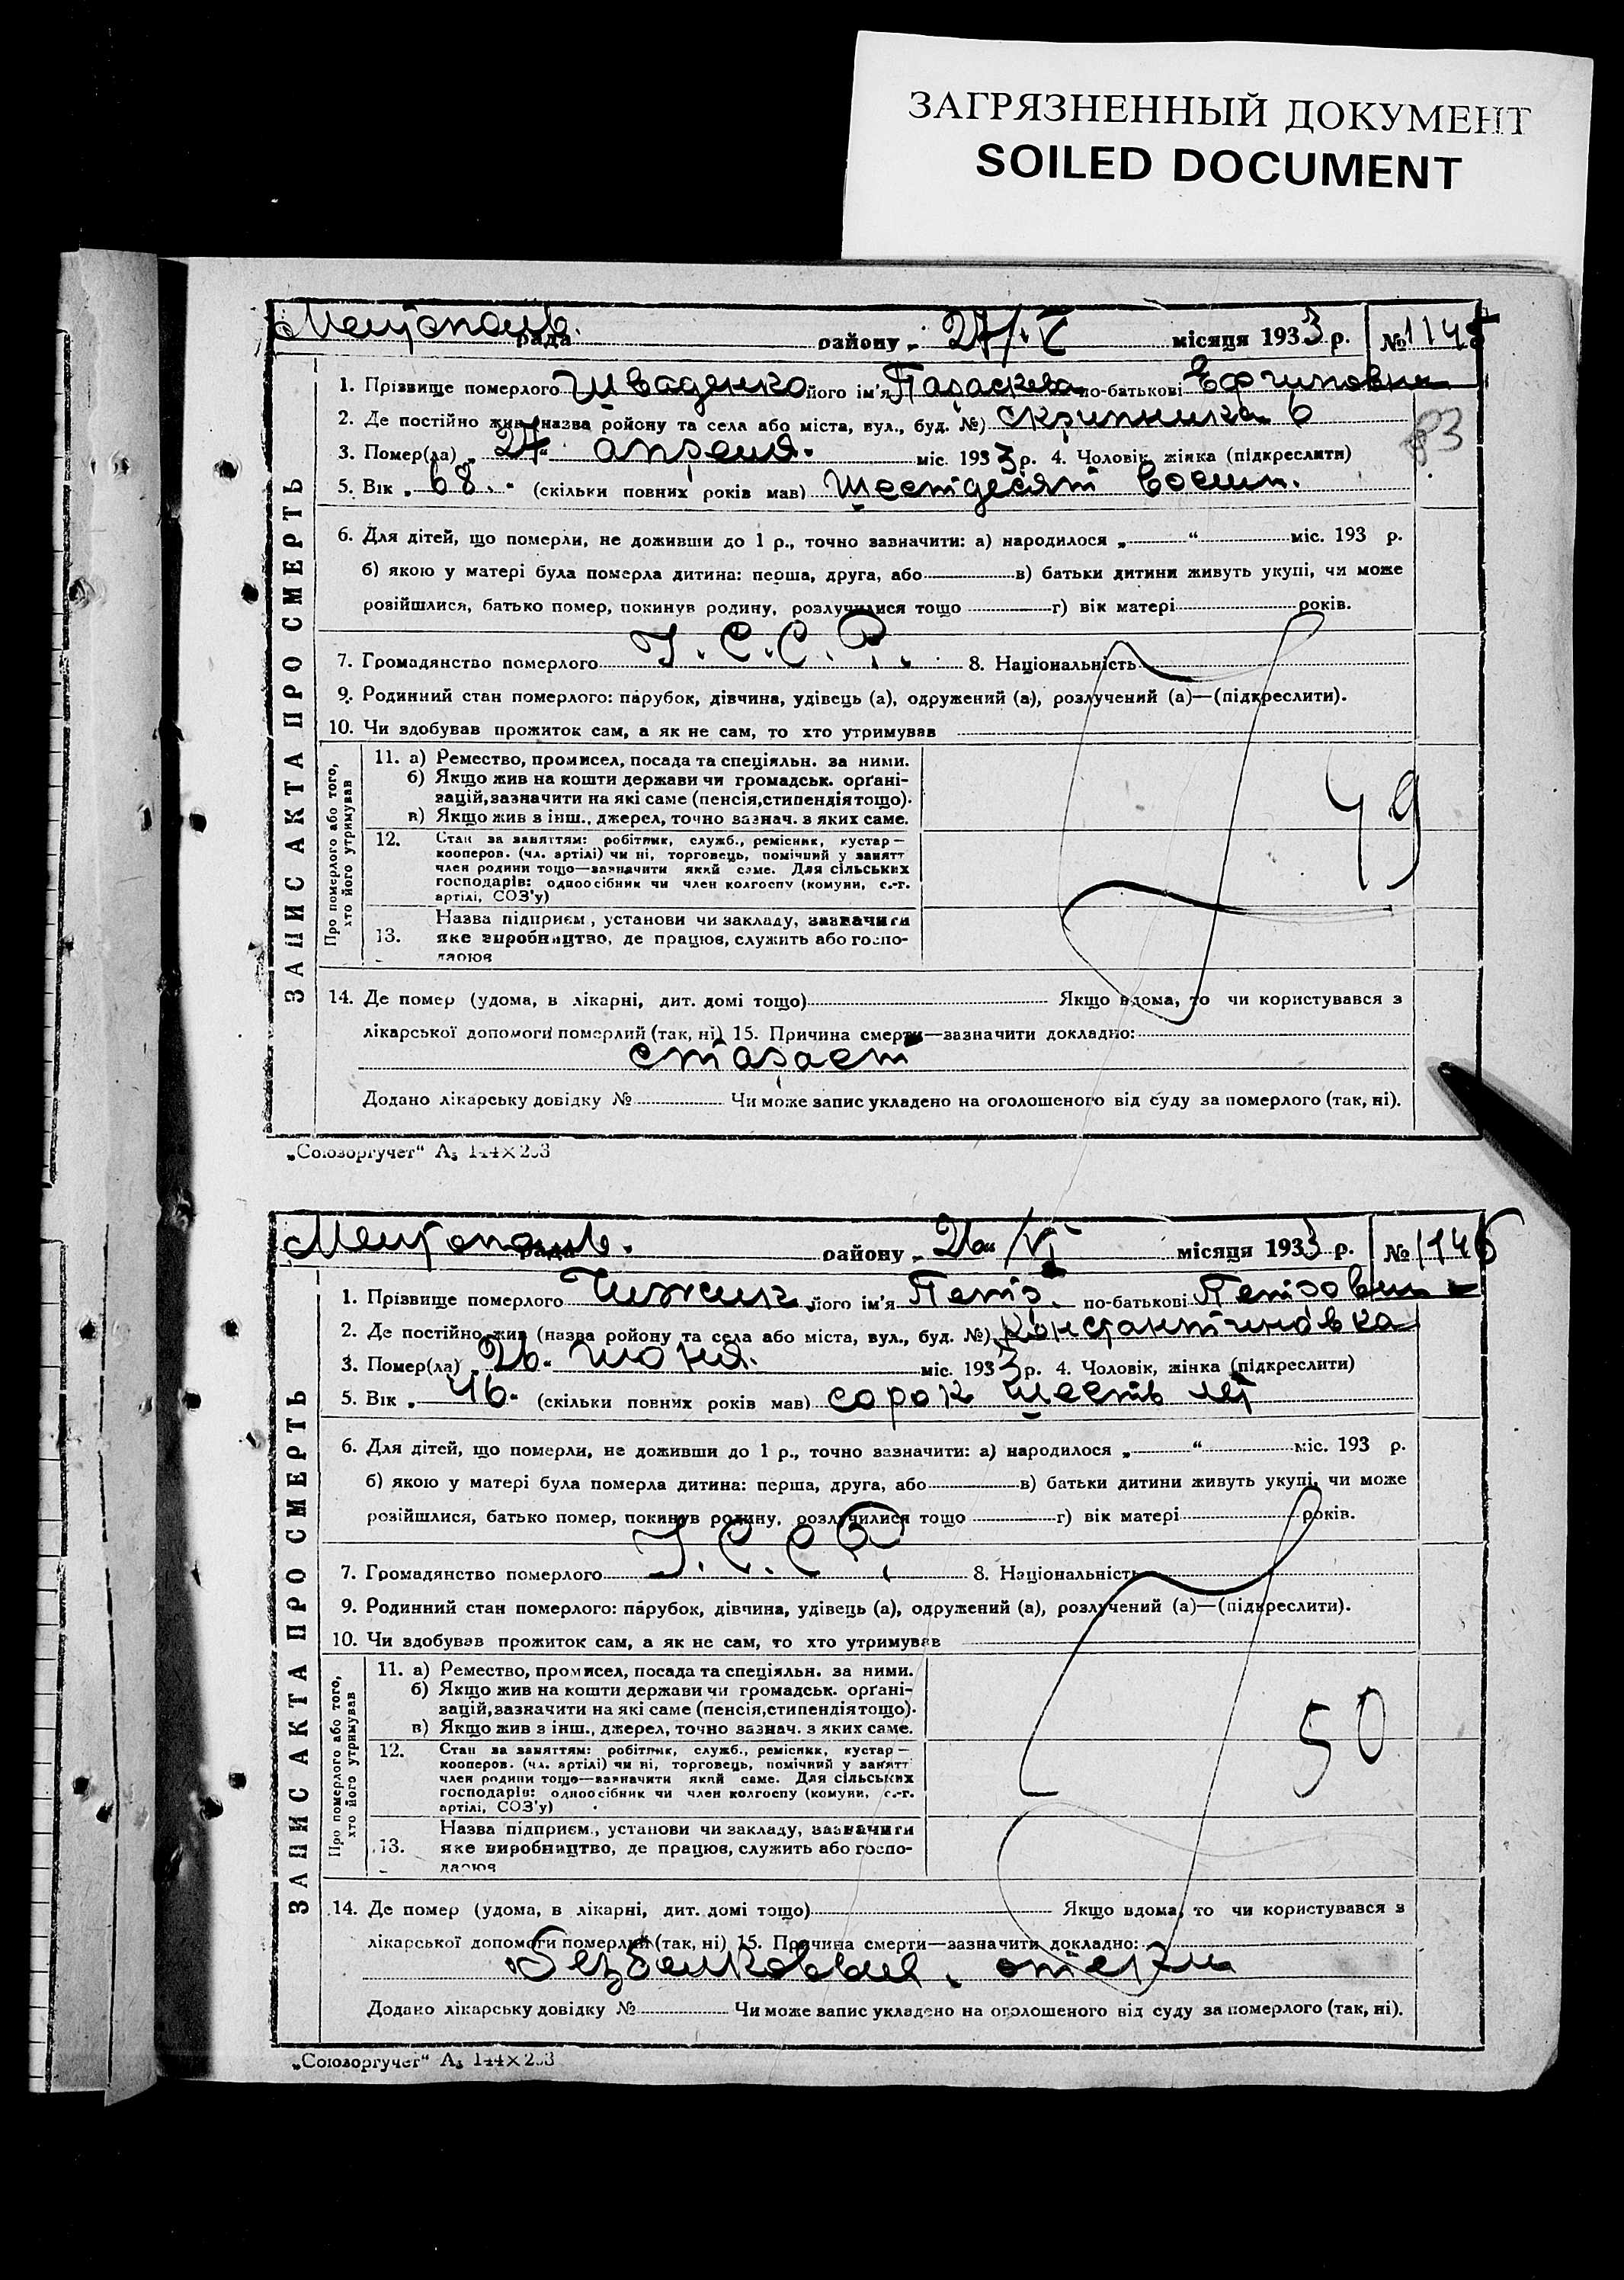 ЗАГРЯЗНЕННЫЙ ДОКУМЕНТ
SOILED DOCUMENT
Меліtополь. рада району „ 27/.V місяця 1933 р. № 1145
83
ЗАПИС АКТА ПРО СМЕРТЬ
1. Прізвище померлого Шваденко його ім'я Параскева по-батькові Ефимовна
2. Де постійно жив (назва району та села або міста, вул., буд. №) скрипника 6
3. Помер(ла) „ 27 " апреля. міс. 1933 р. 4. Чоловік, жінка (підкреслити)
5. Вік „ 68 . " (скільки повних років мав) Шестдесят восим.
6. Для дітей, що померли, не доживши до 1 р., точно зазначити: а) народилося „ “ міс. 193 р.
б) якою у матері була померла дитина: перша, друга, або в) батьки дитини живуть укупі, чи може
розійшлися, батько помер, покинув родину, розлучилися тощо г) вік матері років.
7. Громадянство померлого У.С.С.Р. 8. Національність
9. Родинний стан померлого: парубок, дівчина, удівець (а), одружений (а), розлучений (а)—(підкреслити).
10. Чи здобував прожиток сам, а як не сам, то хто утримував
Про померлого або того, хто його утримував
11. а) Ремество, промисел, посада та спеціяльн. за ними.
б) Якщо жив на кошти держави чи громадськ. орґані-
зацій, зазначити на які саме (пенсія, стипендія тощо).
в) Якщо жив з інш., джерел, точно зазнач. з яких саме.
49
12. Стан за заняттям: робітник, служб., ремісник, кустар—
кооперов. (чл. артілі) чи ні, торговець, помічний у занятт
член родини тощо—зазначити який саме. Для сільських
господарів: одноосібник чи член колгоспу (комуни, с.-г.
артілі, СОЗ'у)
Назва підприєм., установи чи закладу, зазначити
13. яке виробництво, де працює, служить або госпо-
дарює
14. Де помер (удома, в лікарні, дит. домі тощо) Якщо вдома, то чи користувався з
лікарської допомоги померлий (так, ні) 15. Причина смерти—зазначити докладно:
стараст
Додано лікарську довідку № Чи може запис укладено на оголошеного від суду за померлого (так, ні).
„Союзоргучет“ А₅ 144×203
Меліtополь. рада району „ 26 " /VI місяця 1933 р. № 1146
ЗАПИС АКТА ПРО СМЕРТЬ
1. Прізвище померлого Чижик його ім'я Петр. по-батькові Петрович
2. Де постійно жив (назва району та села або міста, вул., буд. №) Константиновка
3. Помер(ла) „ 26 " июня. міс. 1933 р. 4. Чоловік, жінка (підкреслити)
5. Вік „ 46 " (скільки повних років мав) сорок шесть лет
6. Для дітей, що померли, не доживши до 1 р., точно зазначити: а) народилося „ “ міс. 193 р.
б) якою у матері була померла дитина: перша, друга, або в) батьки дитини живуть укупі, чи може
розійшлися, батько помер, покинув родину, розлучилися тощо г) вік матері років.
7. Громадянство померлого У.С.С.Р. 8. Національність
9. Родинний стан померлого: парубок, дівчина, удівець (а), одружений (а), розлучений (а)—(підкреслити).
10. Чи здобував прожиток сам, а як не сам, то хто утримував
Про померлого або того, хто його утримував
11. а) Ремество, промисел, посада та спеціяльн. за ними.
б) Якщо жив на кошти держави чи громадськ. орґані-
зацій, зазначити на які саме (пенсія, стипендія тощо).
в) Якщо жив з інш., джерел, точно зазнач. з яких саме.
50
12. Стан за заняттям: робітник, служб., ремісник, кустар—
кооперов. (чл. артілі) чи ні, торговець, помічний у занятт
член родини тощо—зазначити який саме. Для сільських
господарів: одноосібник чи член колгоспу (комуни, с.-г.
артілі, СОЗ'у)
Назва підприєм., установи чи закладу, зазначити
13. яке виробництво, де працює, служить або госпо-
дарює
14. Де помер (удома, в лікарні, дит. домі тощо) Якщо вдома, то чи користувався з
лікарської допомоги померлий (так, ні) 15. Причина смерти—зазначити докладно:
Безбелковые. отеки
Додано лікарську довідку № Чи може запис укладено на оголошеного від суду за померлого (так, ні).
„Союзоргучет“ А₅ 144×203